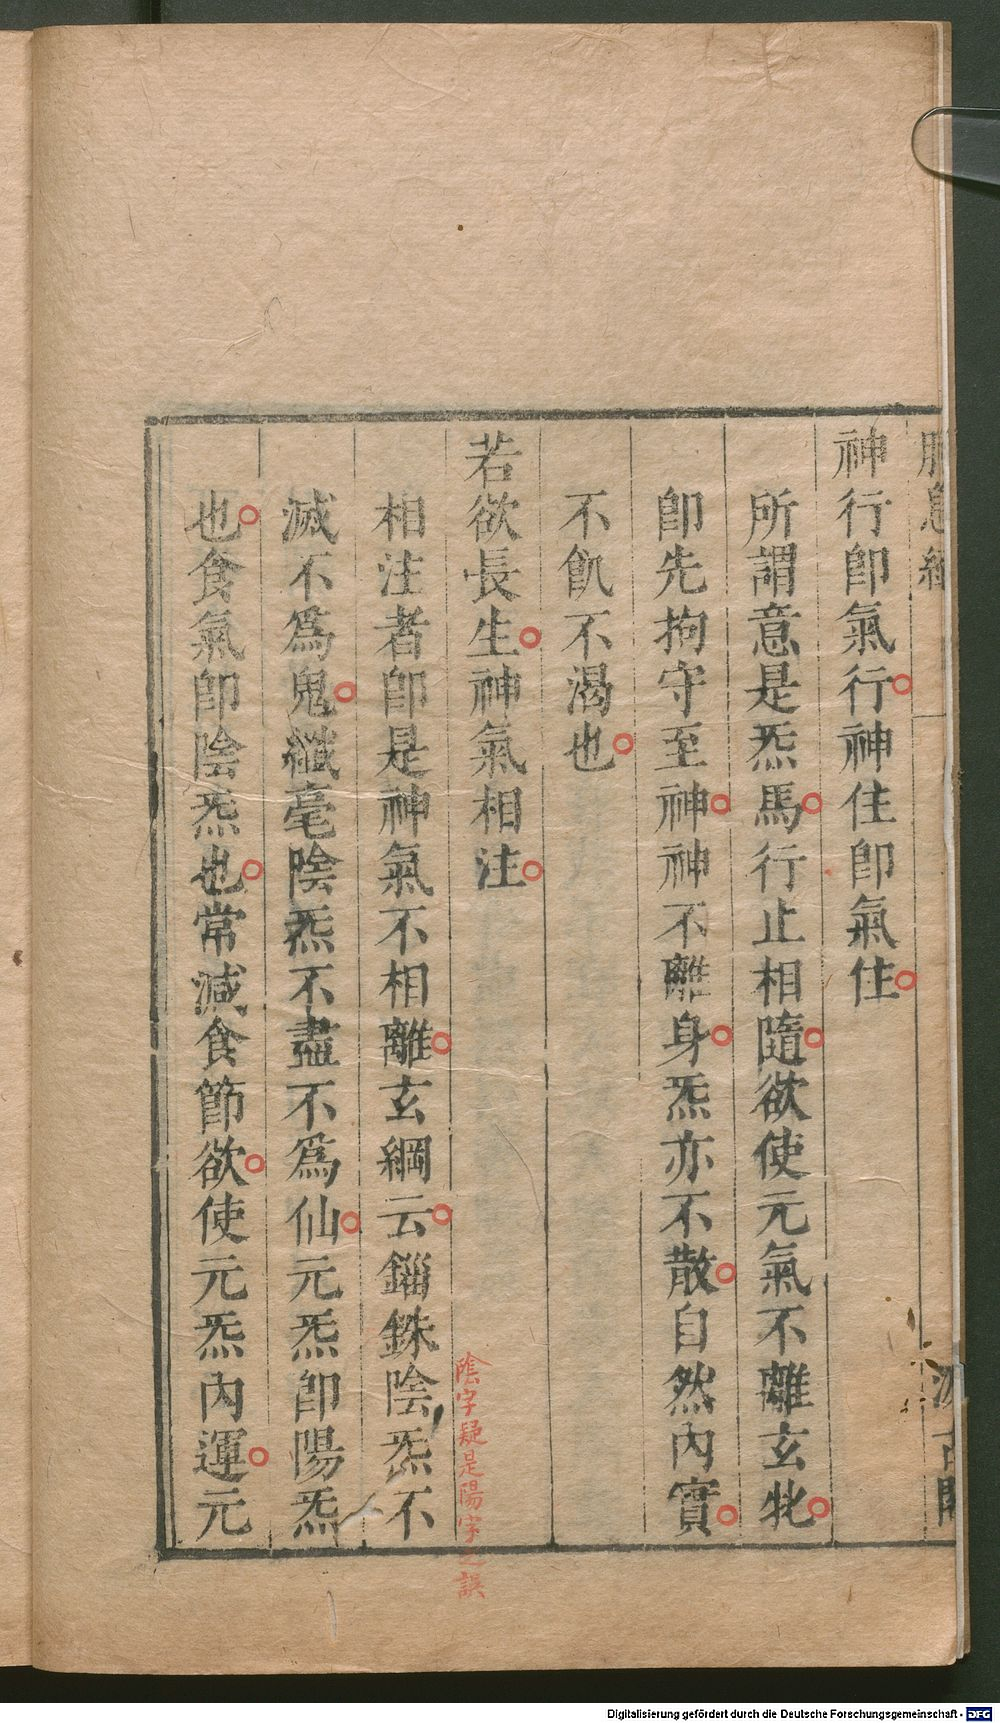 胎息經
汲古閣
神行卽氣行。神住卽氣住。
所謂意是炁馬。行止相隨。欲使元氣不離玄牝。
卽先拘守至神。神不離身。炁亦不散。自然內實。
不飢不渴也。
若欲長生。神氣相注。
陰字疑是陽字之誤
相注者卽是神氣不相離。玄綱云。錙銖陰炁不
滅不爲鬼。纖毫陰炁不盡不爲仙。元炁卽陽炁
也。食氣卽陰炁也。常減食節欲。使元炁內運。元
Digitalisierung gefördert durch die Deutsche Forschungsgemeinschaft - DFG